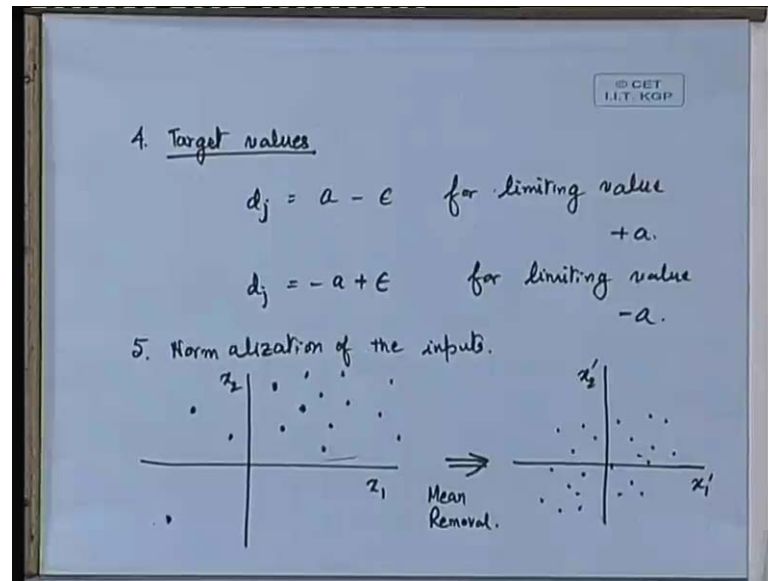 © CET
I.I.T. KGP
4. Target values
dj = a - ϵ for limiting value
+a.
dj = -a + ϵ for limiting value
-a.
5. Normalization of the inputs.
x2
x2'
x1
x1'
⇒
Mean
Removal.